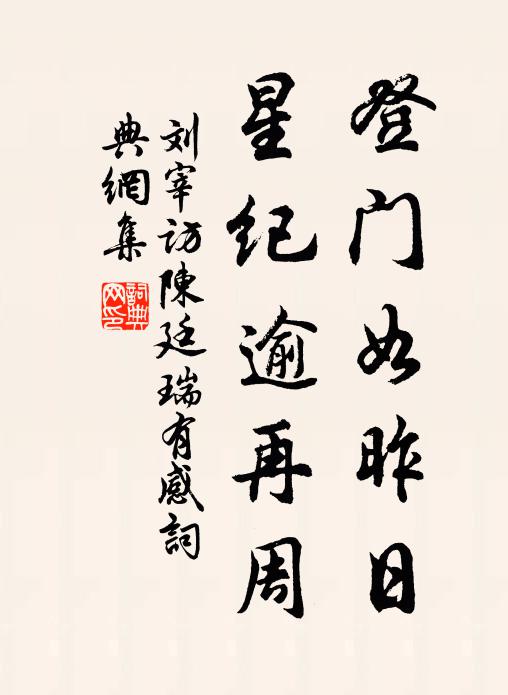 登门如昨日
星纪逾再周
刘宰访陳廷瑞有感詞
典網集
詞典网印